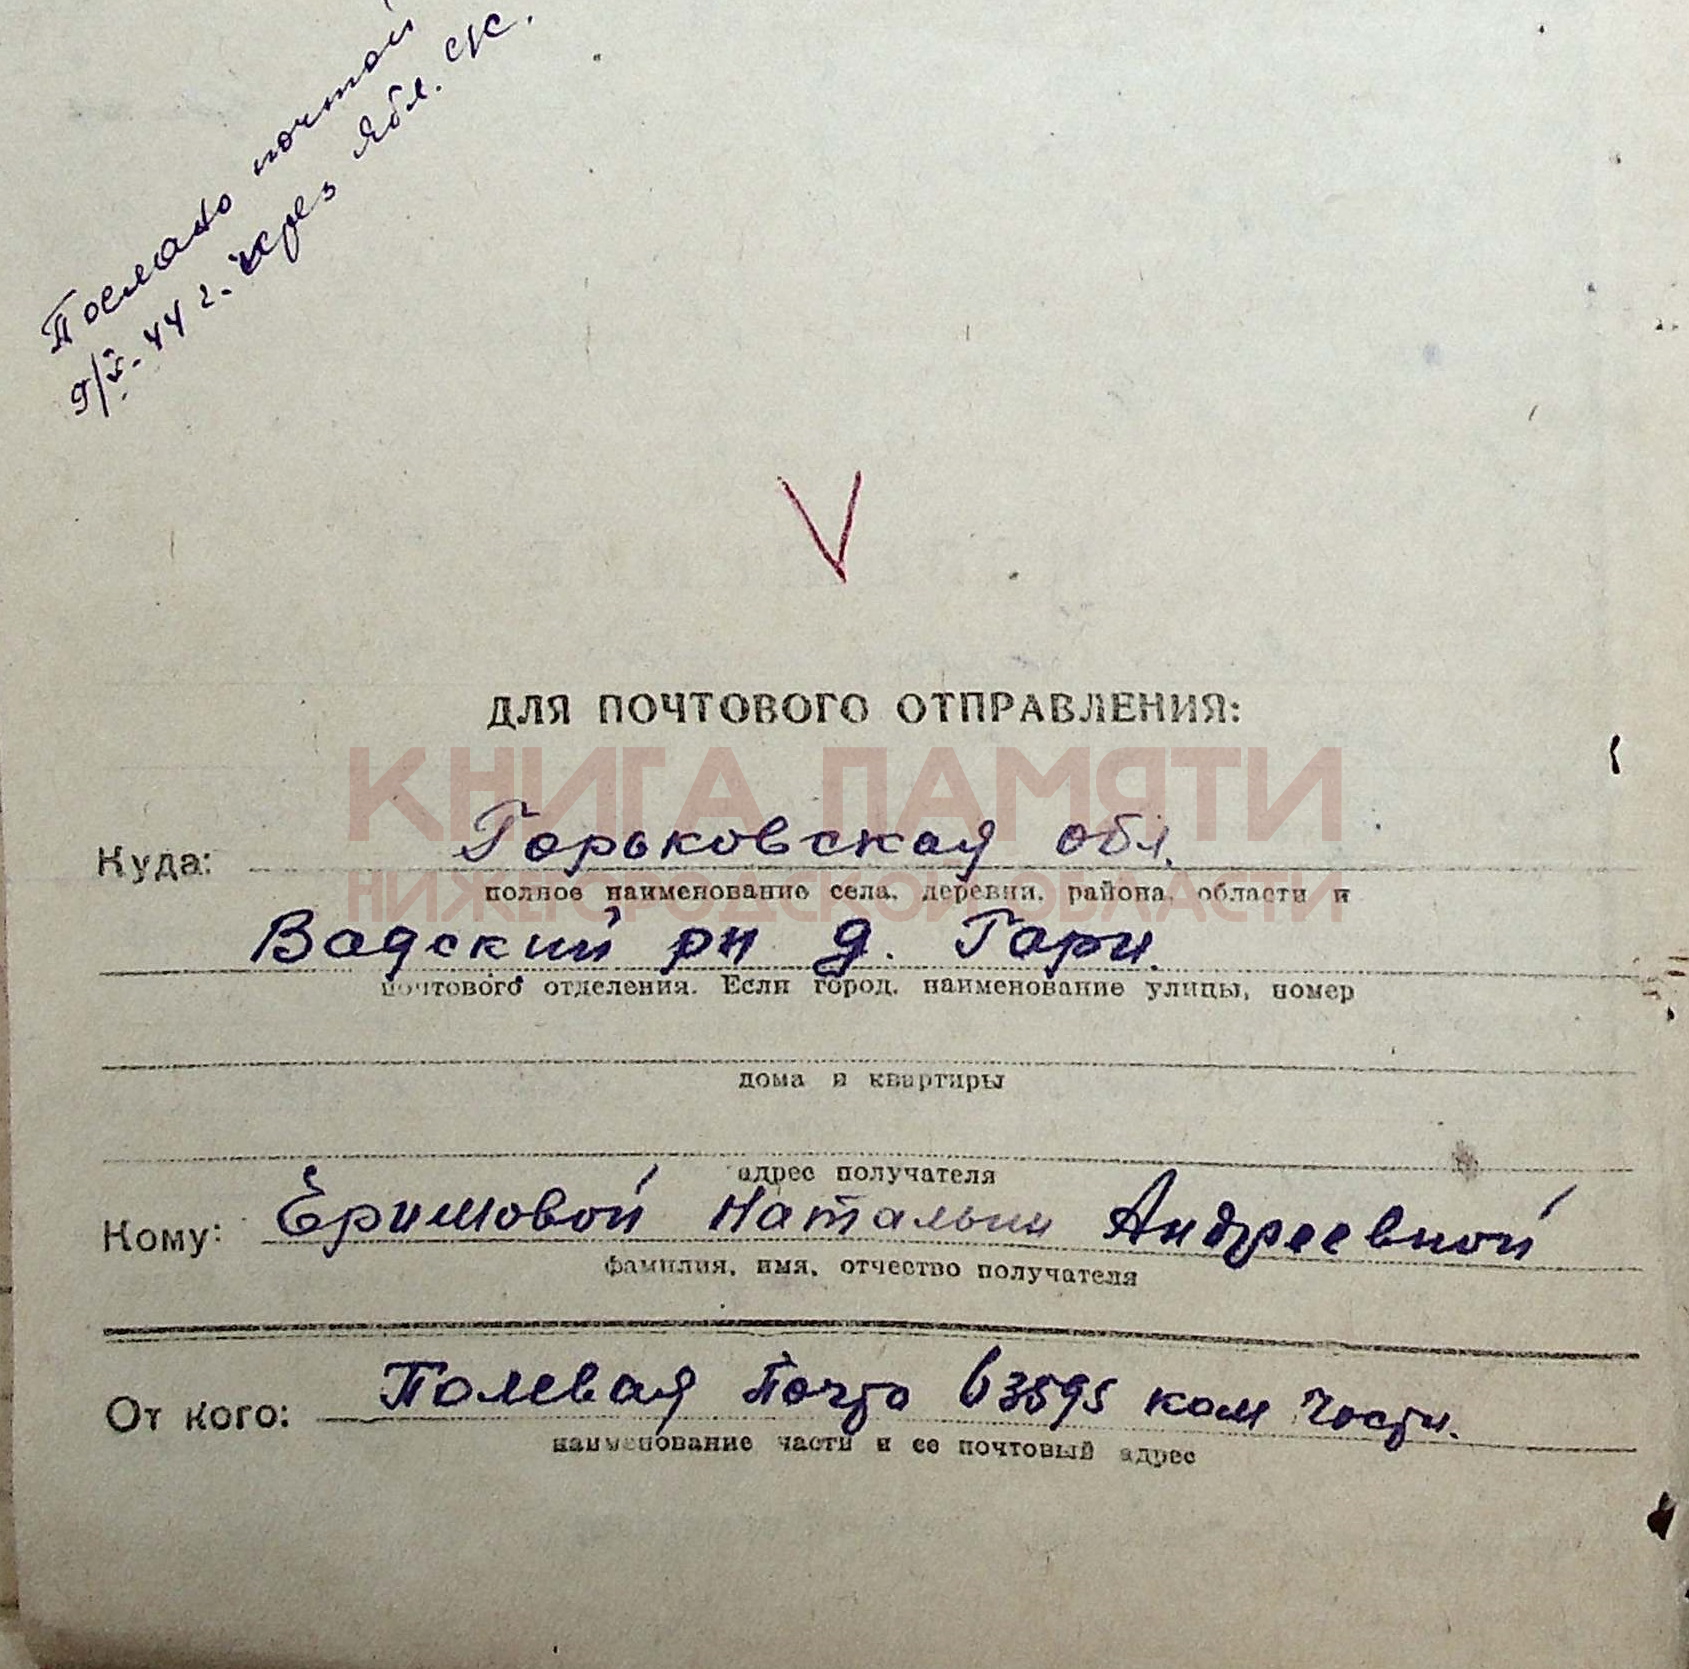 Послано почтой
9/X-44 г. через Ябл. с/с.
V
ДЛЯ ПОЧТОВОГО ОТПРАВЛЕНИЯ:
КНИГА ПАМЯТИ
Куда: Горьковская обл.
полное наименование села, деревни, района, области и
НИЖЕГОРОДСКОЙ ОБЛАСТИ
Вадский рн д. Гари.
почтового отделения. Если город, наименование улицы, номер
дома и квартиры
адрес получателя
Кому: Еримовой Натальи Андреевной
фамилия, имя, отчество получателя
От кого: Полевая почта 03595 ком части.
наименование части и ее почтовый адрес